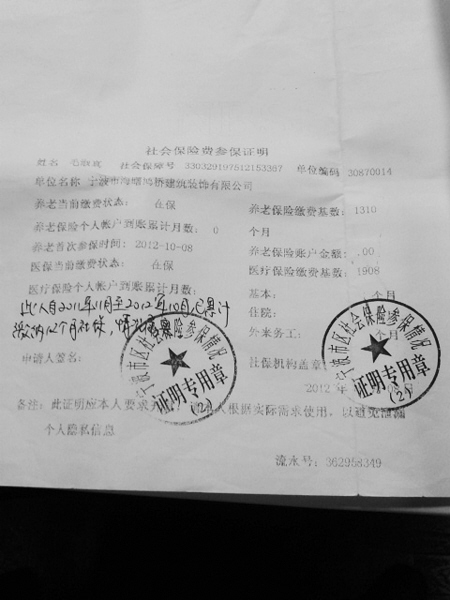 社会保险费参保证明
姓名 毛 社会保障号 330329197512153367 单位编码 30870014
单位名称 宁波市海曙鸿桥建筑装饰有限公司
养老当前缴费状态： 在保 养老保险缴费基数：1310
养老保险个人帐户到账累计月数： 0 个月
养老首次参保时间：2012-10-08 养老保险账户金额：.00
医保当前缴费状态： 在保 医疗保险缴费基数：1908
医疗保险个人帐户到账累计月数： 基本： 个月
此人自2011年11月至2012年10月已累计 住院： 个月
缴纳12个月社保，情况属实 外来务工： 个月
申请人签名： 社保机构盖章：
2012 年
宁波市区社会保险参保情况
证明专用章
(2)
宁波市区社会保险参保情况
证明专用章
(2)
备注：此证明应本人要求 人根据实际需求使用，以避免泄漏
个人隐私信息
流水号：362958349